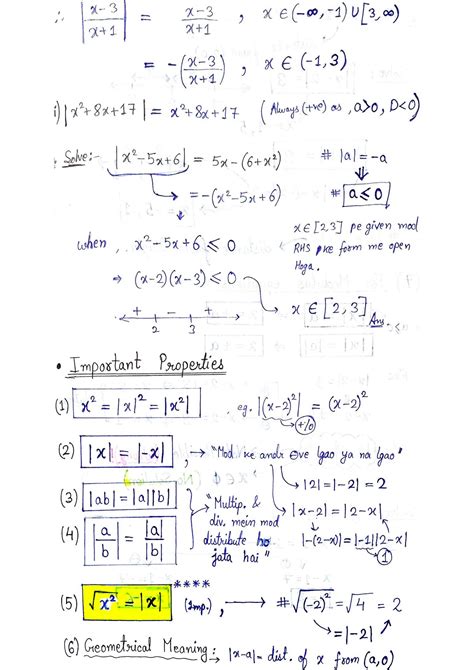 ∴ |x-3/x+1| = x-3/x+1 , x ∈ (-∞, -1) ∪ [3, ∞)
= -(x-3/x+1) , x ∈ (-1, 3)
i) |x²+8x+17| = x²+8x+17 (Always (+ve) as , a>0, D<0)
Solve:- |x²-5x+6| = 5x-(6+x²) # |a|=-a
= -(x²-5x+6) # a ≤ 0
x ∈ [2,3] pe given mod
when , x²-5x+6 ≤ 0 RHS ke form me open
Hoga.
⇒ (x-2)(x-3) ≤ 0 → x ∈ [2, 3] Ans.
+ - +
2 3
• Important Properties
(1) x² = |x|² = |x²| , eg. |(x-2)²| = (x-2)²
+/0
(2) |x| = |-x| , → "Mod ke andr ⊖ve lgao ya na lgao"
→ |2| = |-2| = 2
(3) |ab| = |a||b| "Multip. & → |x-2| = |2-x|
(4) |a/b| = |a|/|b| div. mein mod
distribute ho |-(2-x)| = |-1||2-x|
jata hai" 1
(5) √x² = |x| **** (Imp.) , → # √(-2)² = √4 = 2
= |-2|
(6) Geometrical Meaning: → |x-a| = dist. of x from (a,0)